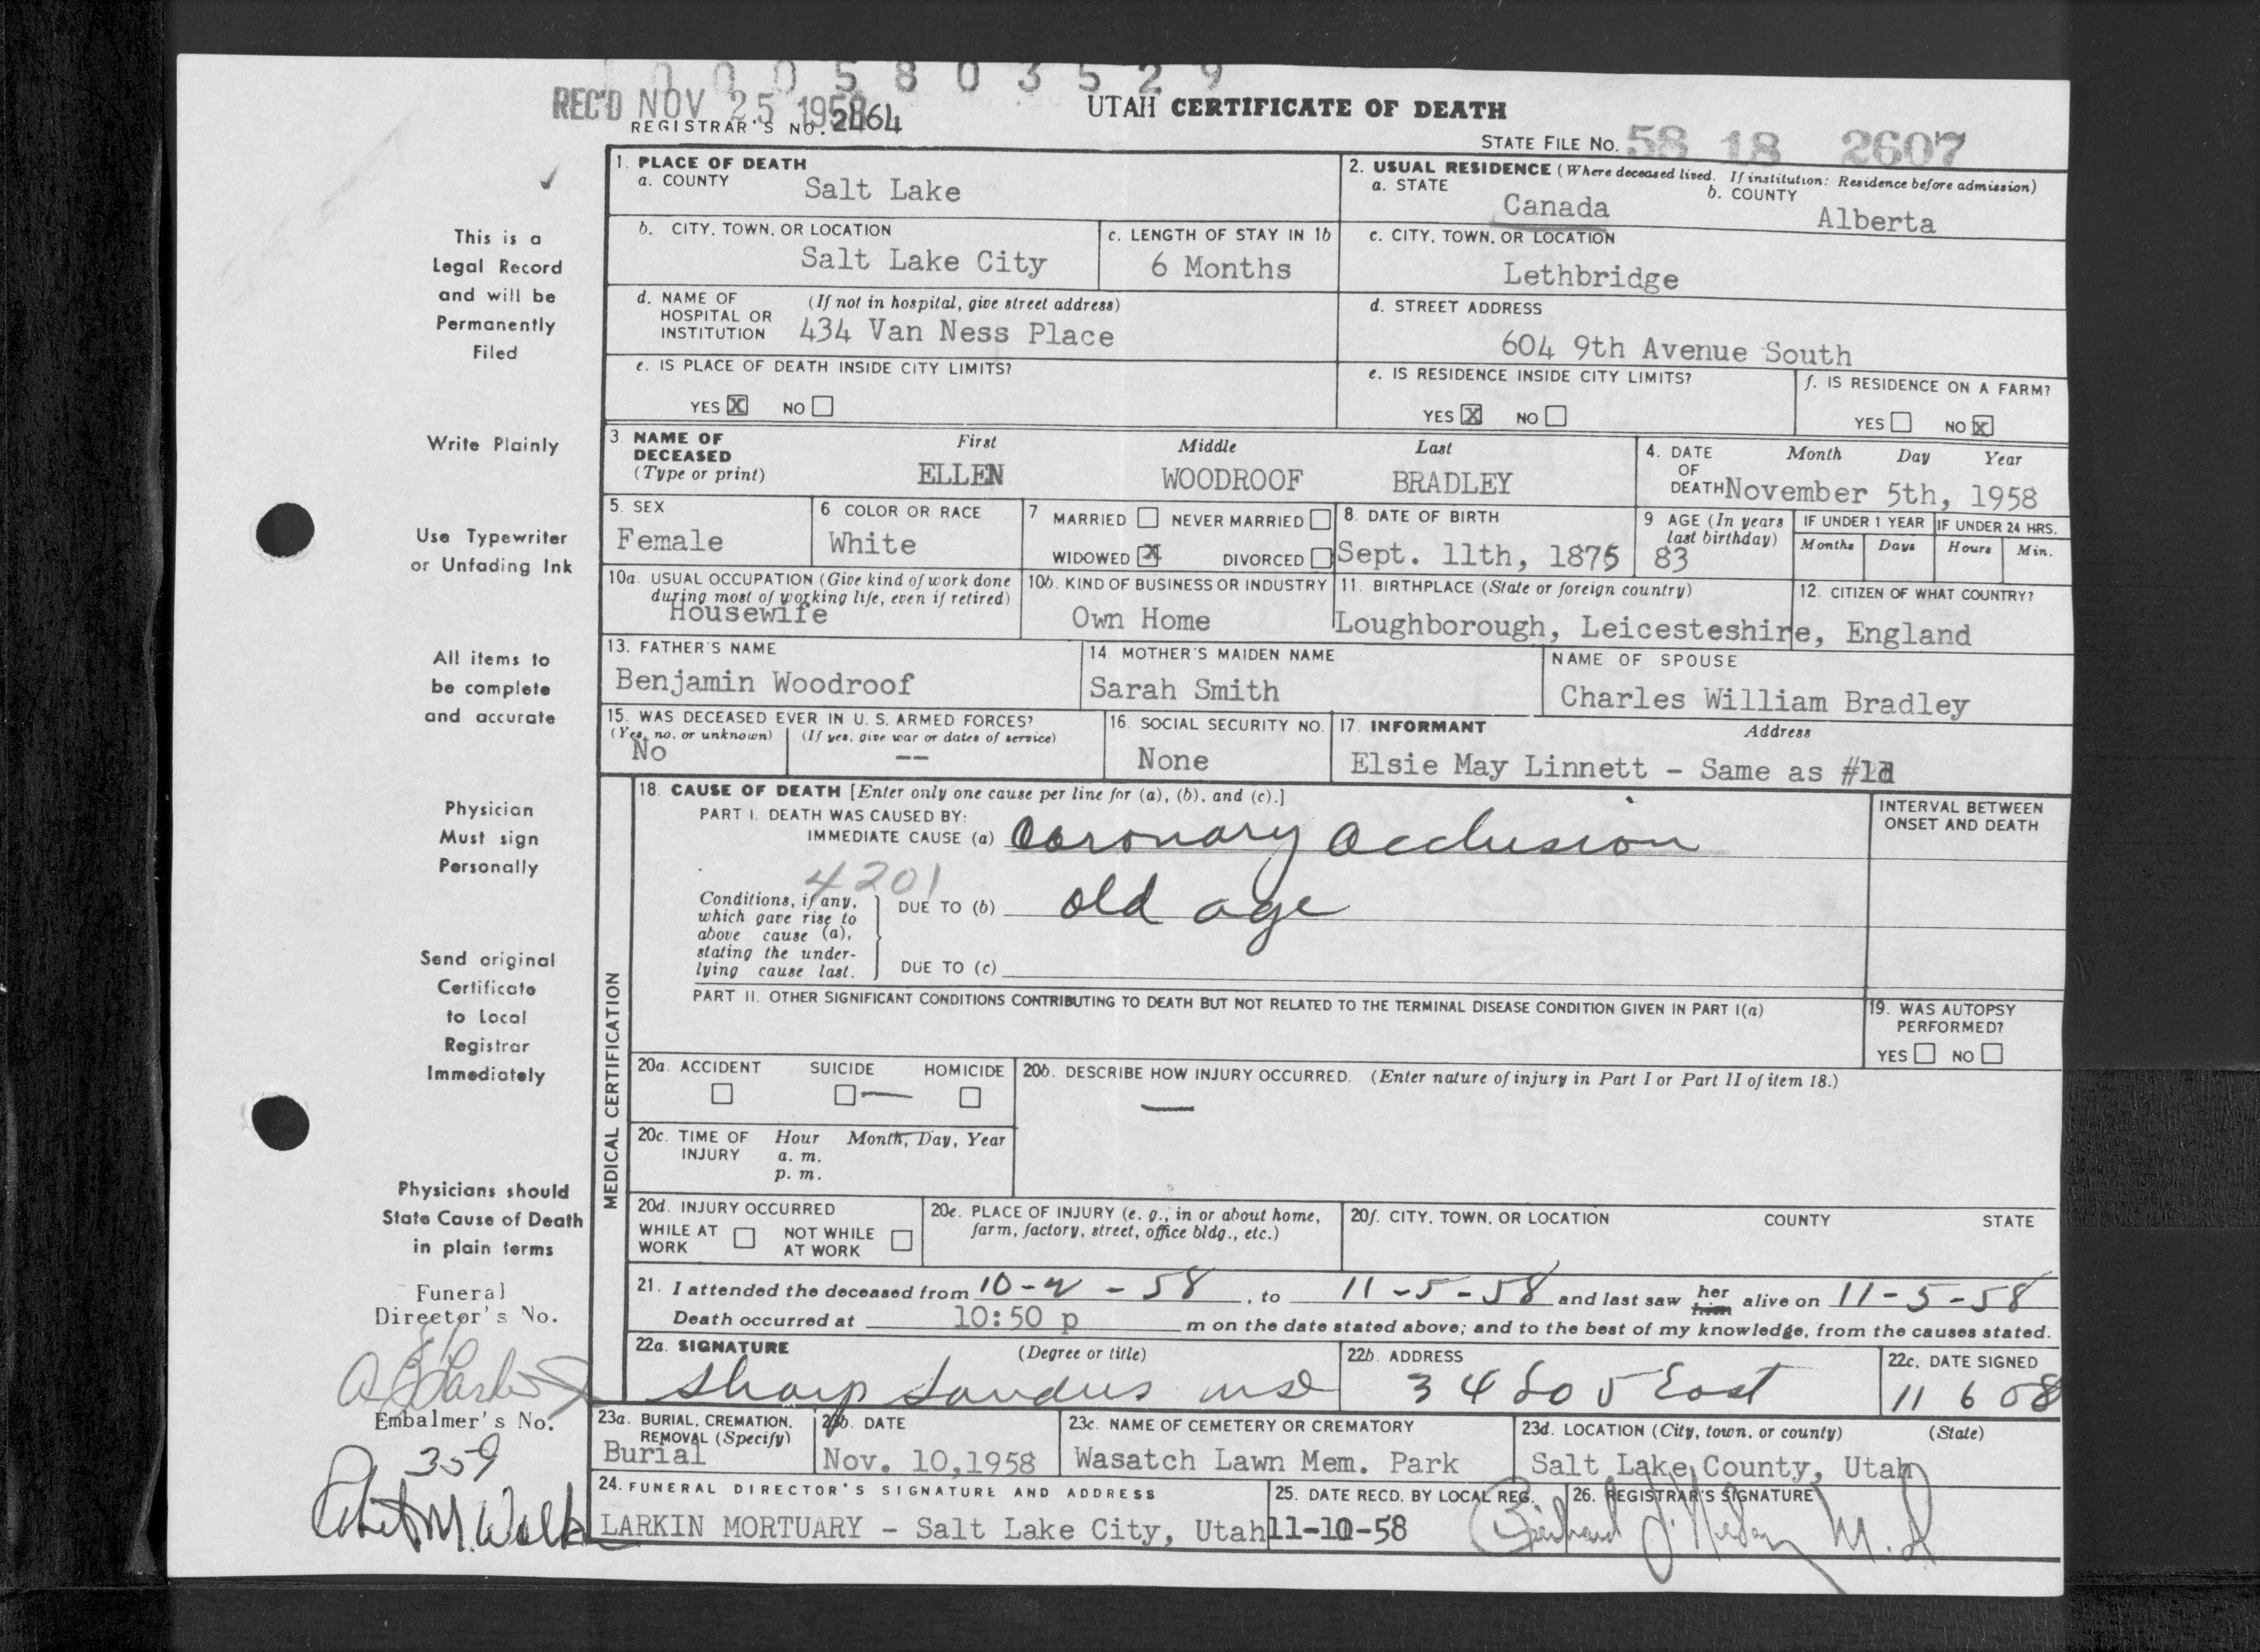 0 0 0 5 8 0 3 5 2 9
REC'D NOV 25 1958
REGISTRAR'S NO. 2464
UTAH CERTIFICATE OF DEATH
STATE FILE NO. 58 18 2607
This is a
Legal Record
and will be
Permanently
Filed
Write Plainly
Use Typewriter
or Unfading Ink
All items to
be complete
and accurate
Physician
Must sign
Personally
Send original
Certificate
to Local
Registrar
Immediately
Physicians should
State Cause of Death
in plain terms
Funeral
Director's No.
Embalmer's No.
359
1. PLACE OF DEATH
a. COUNTY
Salt Lake
2. USUAL RESIDENCE (Where deceased lived. If institution: Residence before admission)
a. STATE
Canada
b. COUNTY
Alberta
b. CITY, TOWN, OR LOCATION
Salt Lake City
c. LENGTH OF STAY IN 1b
6 Months
c. CITY, TOWN, OR LOCATION
Lethbridge
d. NAME OF HOSPITAL OR INSTITUTION
(If not in hospital, give street address)
434 Van Ness Place
d. STREET ADDRESS
604 9th Avenue South
e. IS PLACE OF DEATH INSIDE CITY LIMITS?
YES X NO
e. IS RESIDENCE INSIDE CITY LIMITS?
YES X NO
f. IS RESIDENCE ON A FARM?
YES NO X
3. NAME OF DECEASED
(Type or print)
First Middle Last
ELLEN WOODROOF BRADLEY
4. DATE OF DEATH
Month Day Year
November 5th, 1958
5. SEX
Female
6 COLOR OR RACE
White
7 MARRIED NEVER MARRIED
WIDOWED X DIVORCED
8. DATE OF BIRTH
Sept. 11th, 1875
9 AGE (In years last birthday)
83
IF UNDER 1 YEAR
Months Days
IF UNDER 24 HRS.
Hours Min.
10a. USUAL OCCUPATION (Give kind of work done during most of working life, even if retired)
Housewife
10b. KIND OF BUSINESS OR INDUSTRY
Own Home
11. BIRTHPLACE (State or foreign country)
Loughborough, Leicesteshire, England
12. CITIZEN OF WHAT COUNTRY?
13. FATHER'S NAME
Benjamin Woodroof
14. MOTHER'S MAIDEN NAME
Sarah Smith
NAME OF SPOUSE
Charles William Bradley
15. WAS DECEASED EVER IN U. S. ARMED FORCES?
(Yes, no. or unknown) (If yes, give war or dates of service)
No --
16. SOCIAL SECURITY NO.
None
17. INFORMANT Address
Elsie May Linnett - Same as #1d
MEDICAL CERTIFICATION
18. CAUSE OF DEATH [Enter only one cause per line for (a), (b), and (c).]
PART I. DEATH WAS CAUSED BY:
IMMEDIATE CAUSE (a) Coronary Occlusion
INTERVAL BETWEEN ONSET AND DEATH
4201
Conditions, if any, which gave rise to above cause (a), stating the underlying cause last.
DUE TO (b) old age
DUE TO (c)
PART II. OTHER SIGNIFICANT CONDITIONS CONTRIBUTING TO DEATH BUT NOT RELATED TO THE TERMINAL DISEASE CONDITION GIVEN IN PART I(a)
19. WAS AUTOPSY PERFORMED?
YES NO
20a. ACCIDENT SUICIDE HOMICIDE
20b. DESCRIBE HOW INJURY OCCURRED. (Enter nature of injury in Part I or Part II of item 18.)
20c. TIME OF INJURY
Hour Month, Day, Year
a. m.
p. m.
20d. INJURY OCCURRED
WHILE AT WORK NOT WHILE AT WORK
20e. PLACE OF INJURY (e. g., in or about home, farm, factory, street, office bldg., etc.)
20f. CITY, TOWN, OR LOCATION COUNTY STATE
21. I attended the deceased from 10-2-58, to 11-5-58 and last saw her him alive on 11-5-58
Death occurred at 10:50 p m on the date stated above; and to the best of my knowledge, from the causes stated.
22a. SIGNATURE (Degree or title)
Sharp Sanders MD
22b. ADDRESS
22c. DATE SIGNED
11 6 58
23a. BURIAL, CREMATION, REMOVAL (Specify)
Burial
23b. DATE
Nov. 10,1958
23c. NAME OF CEMETERY OR CREMATORY
Wasatch Lawn Mem. Park
23d. LOCATION (City, town, or county) (State)
Salt Lake County, Utah
24. FUNERAL DIRECTOR'S SIGNATURE AND ADDRESS
LARKIN MORTUARY - Salt Lake City, Utah
25. DATE RECD. BY LOCAL REG.
11-10-58
26. REGISTRAR'S SIGNATURE